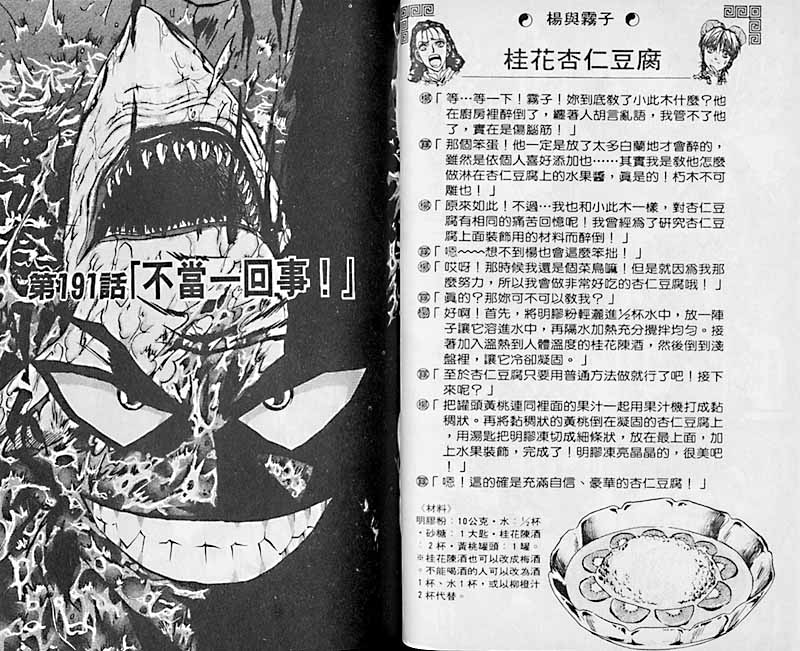 第191話「不當一回事！」
楊與霧子
桂花杏仁豆腐
楊「等…等一下！霧子！妳到底教了小此木什麼？他
在廚房裡醉倒了，纏著人胡言亂語，我管不了他
了，實在是傷腦筋！」
霧「那個笨蛋！他一定是放了太多白蘭地才會醉的，
雖然是依個人喜好添加也……其實我是教他怎麼
做淋在杏仁豆腐上的水果醬，眞是的！朽木不可
雕也！」
楊「原來如此！不過…我也和小此木一樣，對杏仁豆
腐有相同的痛苦回憶呢！我曾經為了研究杏仁豆
腐上面裝飾用的材料而醉倒！」
霧「嗯～～想不到楊也會這麼笨拙！」
楊「哎呀！那時候我還是個菜鳥嘛！但是就因為我那
麼努力，所以我會做非常好吃的杏仁豆腐哦！」
霧「眞的？那妳可不可以教我？」
楊「好啊！首先，將明膠粉輕灑進½杯水中，放一陣
子讓它溶進水中，再隔水加熱充分攪拌均勻。接
著加入溫熱到人體溫度的桂花陳酒，然後倒到淺
盤裡，讓它冷卻凝固。」
霧「至於杏仁豆腐只要用普通方法做就行了吧！接下
來呢？」
楊「把罐頭黃桃連同裡面的果汁一起用果汁機打成黏
稠狀。再將黏稠狀的黃桃倒在凝固的杏仁豆腐上
，用湯匙把明膠凍切成細條狀，放在最上面，加
上水果裝飾，完成了！明膠凍亮晶晶的，很美吧
！」
霧「嗯！這的確是充滿自信、豪華的杏仁豆腐！」
〈材料〉
明膠粉：10公克・水：½杯
・砂糖：1大匙・桂花陳酒
：2杯・黃桃罐頭：1罐。
※桂花陳酒也可以改成梅酒
。不能喝酒的人可以改為酒
1杯、水1杯，或以柳橙汁
2杯代替。